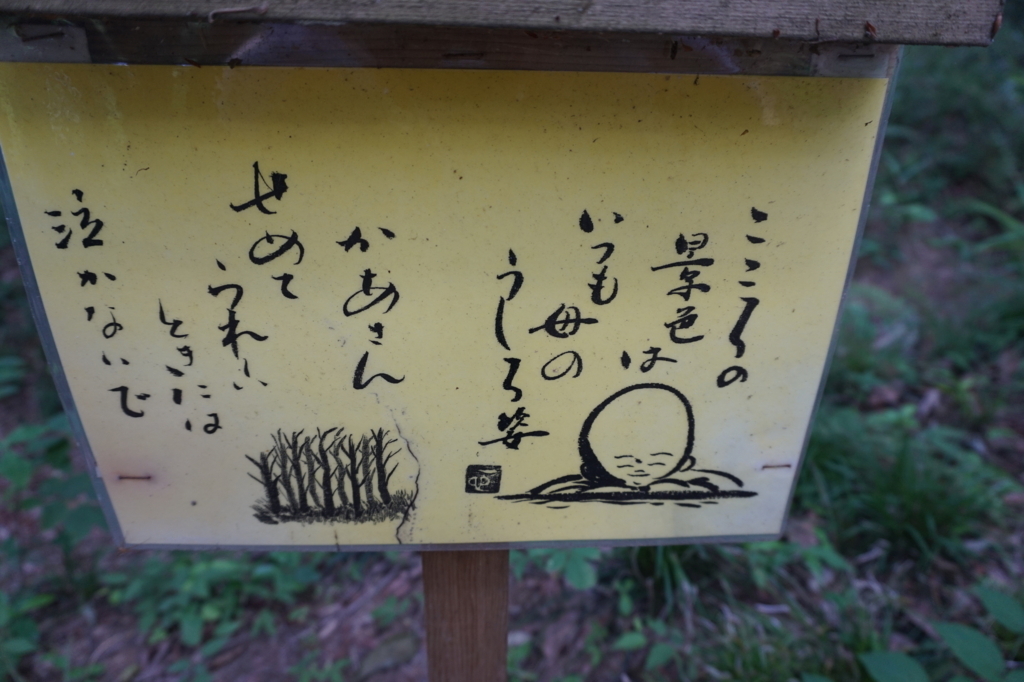 こころの
景色は
いつも
母の
うしろ姿
かあさん
せめて
うれしい
ときには
泣かないで